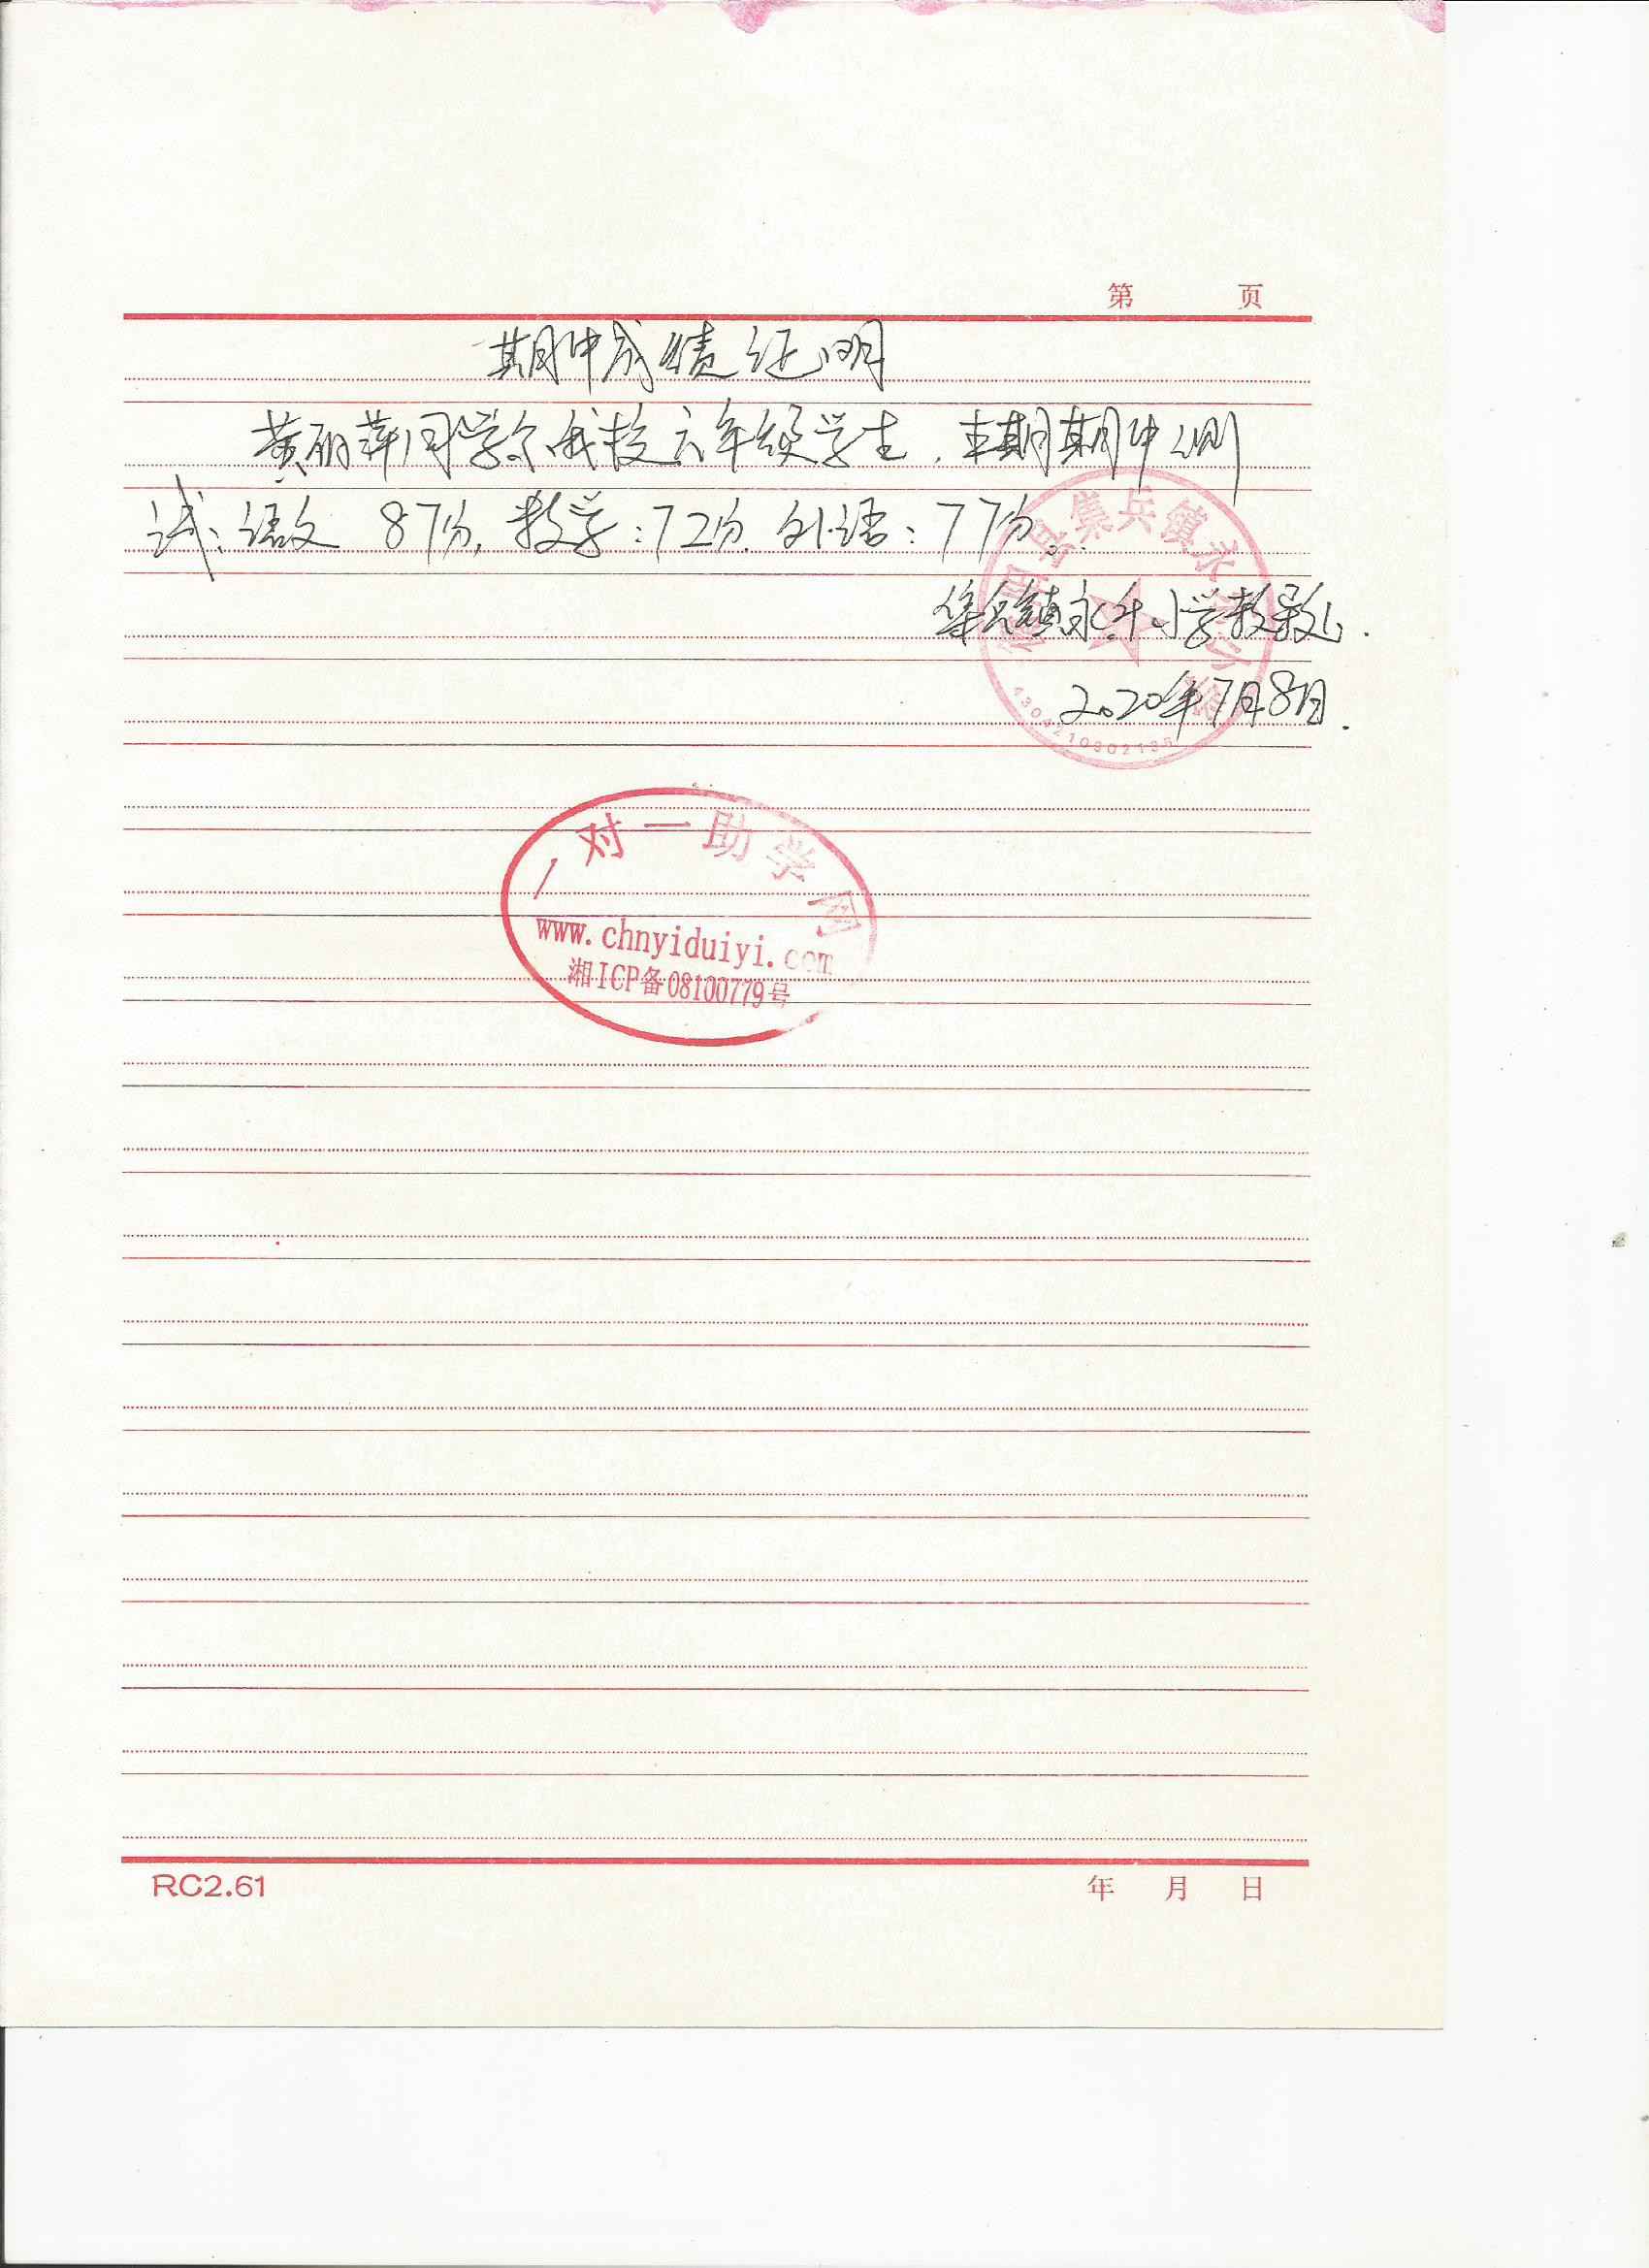 第 页
期中成绩证明
黄丽萍同学系我校六年级学生，本期期中测
试：语文 87分，数学：72分. 外语：77分。
集兵镇永升小学教导处.
2020年7月8日.
阳县集兵镇永
一对一助学网
www.chnyiduiyi.com
湘ICP备08100779号
RC2.61 年 月 日